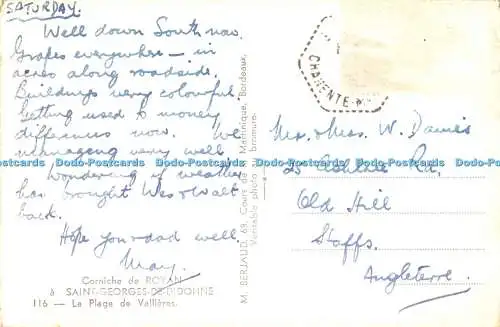 SATURDAY.
Well down South now.
Grapes everywhere – in
acres along roadside.
Buildings very colourful.
Getting used to money
difference now. We
managing very well.
Wondering if weather
has brought Wes & Walt
back.
Hope your dad well.
May.
Corniche de ROYAN
à SAINT-GEORGES-DE-DIDONNE
116 – La Plage de Vallières.
M. BERJAUD, 68, Cours de la Martinique, Bordeaux.
Véritable photo au bromure.
CHARENTE-M
Mr. & Mrs. W. Davies
25 Rd.
Old Hill
Staffs.
Angleterre.
Dodo-Postcards Dodo-Postcards Dodo-Postcards Dodo-Postcards Dodo-Postcards